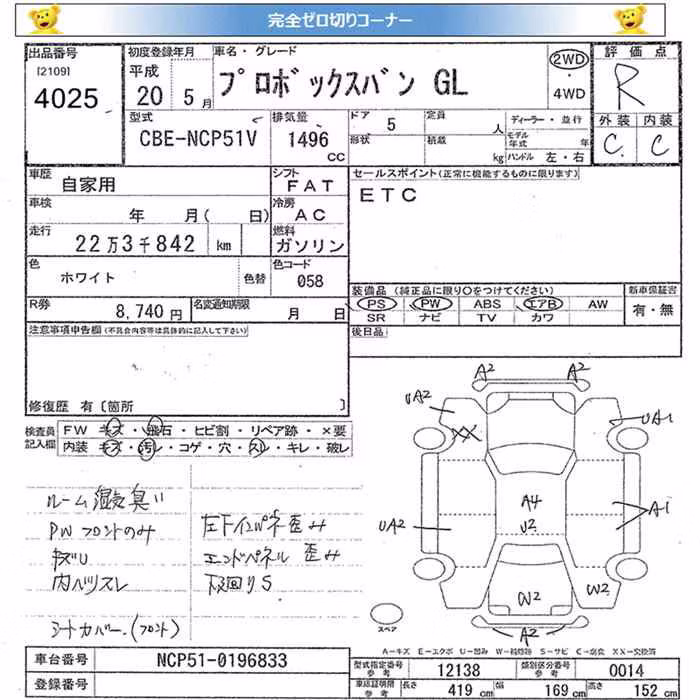 完全ゼロ切りコーナー
出品番号 初度登録年月 車名・グレード 評価点
[2109] 平成 2WD
4025 20 5月 プロボックスバン GL ・ R
4WD
型式 排気量 ドア 5 定員 人 ディーラー・並行 外装 内装
CBE-NCP51V 1496 cc 形状 積載 kg モデル年式 年 C. C
ハンドル 左・右
車歴 自家用 シフト FAT セールスポイント(正常に機能するものに限ります)
車検 年 月( 日) 冷房 AC ETC
走行 22万3千842 km 燃料 ガソリン
色 ホワイト 色替 色コード 058
装備品 (純正品に限り○をつけてください) 新車保証書
R券 8,740円 名変通知期限 月 日 PS PW ABS エアB AW 有・無
SR ナビ TV カワ
注意事項申告欄(不具合内容等は具体的に記入して下さい) 後日品
修復歴 有〔箇所 〕
検査員記入欄 FW キズ・飛石・ヒビ割・リペア跡・×要
内装 キズ・汚レ・コゲ・穴・スレ・キレ・破レ
A2 A2
UA2 UA1
XX
ルーム湿気臭い
PWフロントのみ 左下インパネ歪み
キズU エンドパネル歪み
内ハリスレ 下廻りS
シートカバー.(フロント)
UA2 A4 A1
U2
W2 W2
A2
スペア
A-キズ E-エクボ U-凹み W-補修跡 S-サビ C-腐食 XX-交換済
車台番号 NCP51-0196833 型式指定番号 参考 12138 類別区分番号 参考 0014
登録番号 車庫証明用 参考 長さ 419 cm 幅 169 cm 高さ 152 cm